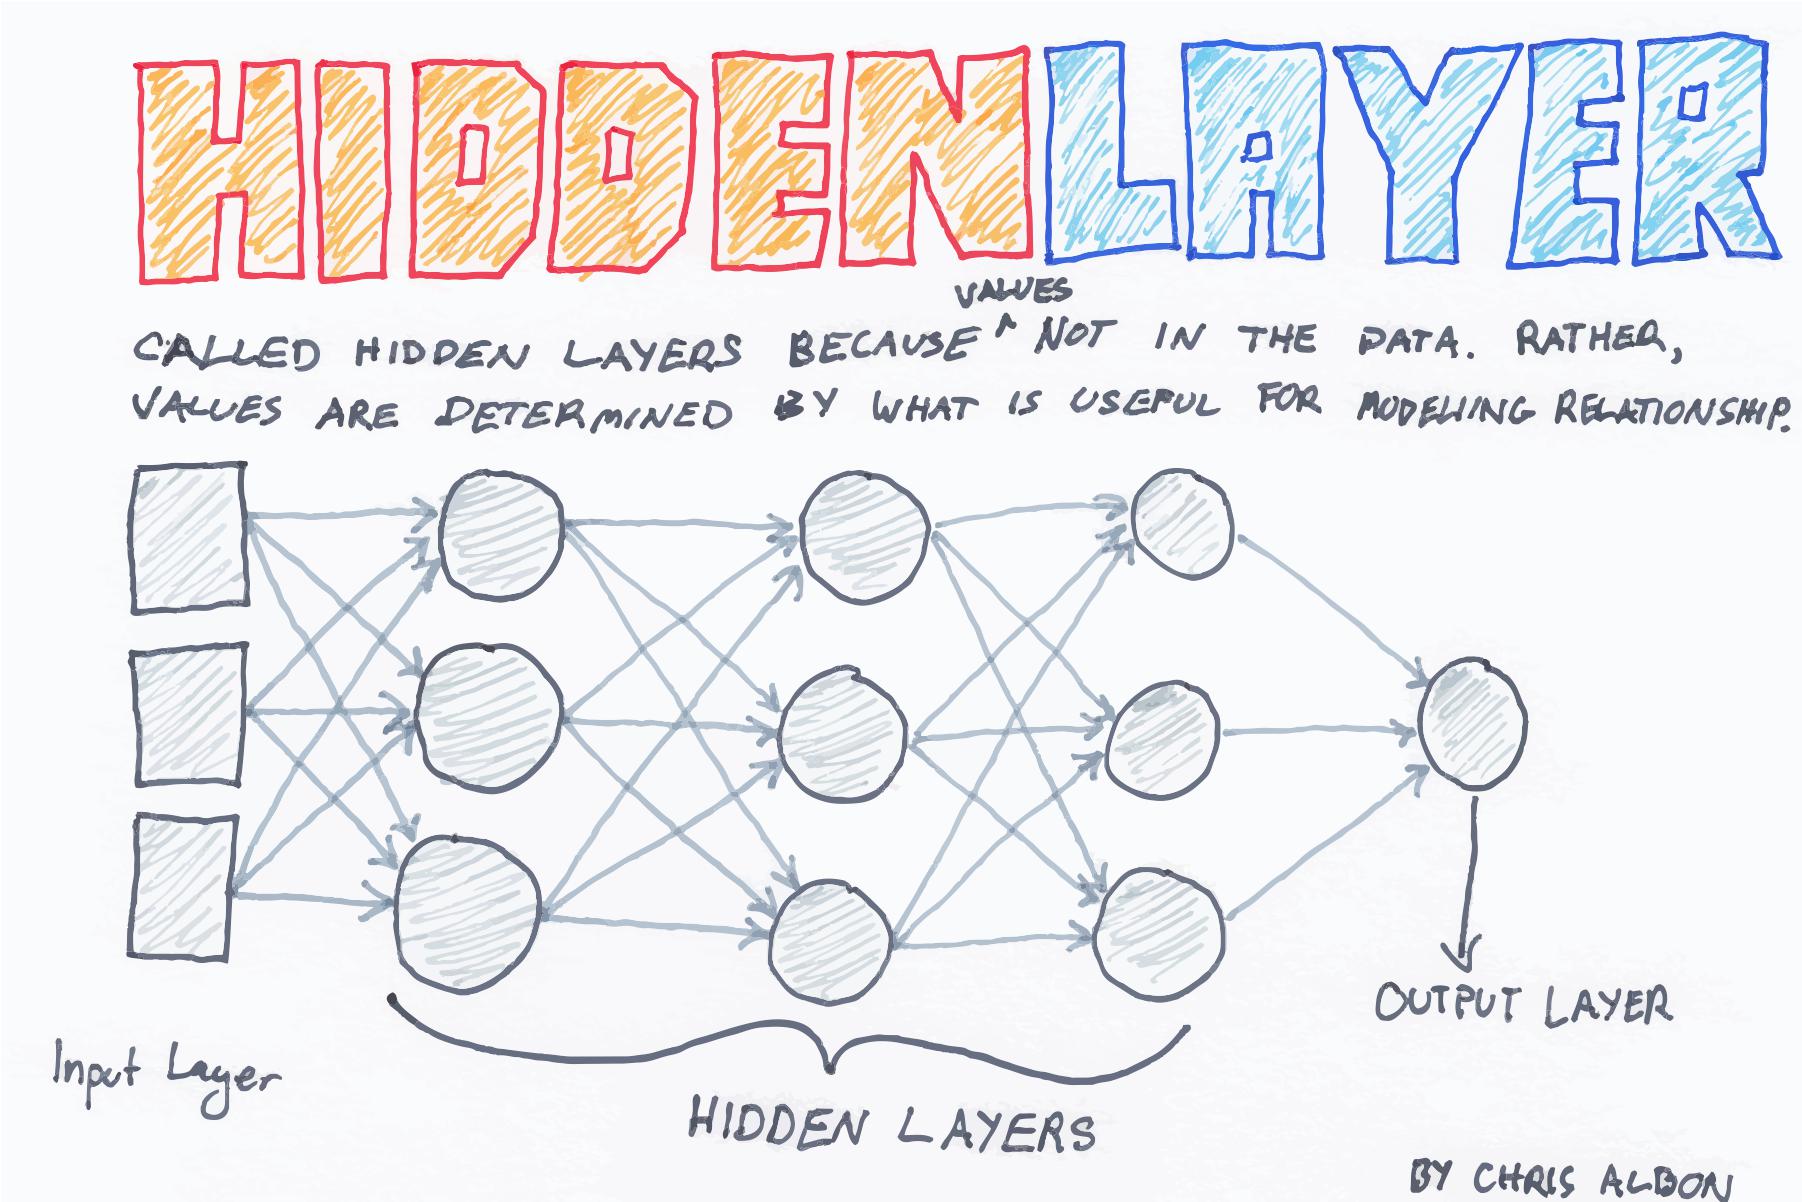 HIDDEN LAYER
CALLED HIDDEN LAYERS BECAUSE ^VALUES NOT IN THE DATA. RATHER,
VALUES ARE DETERMINED BY WHAT IS USEFUL FOR MODELING RELATIONSHIP.
OUTPUT LAYER
Input Layer
HIDDEN LAYERS
BY CHRIS ALBON